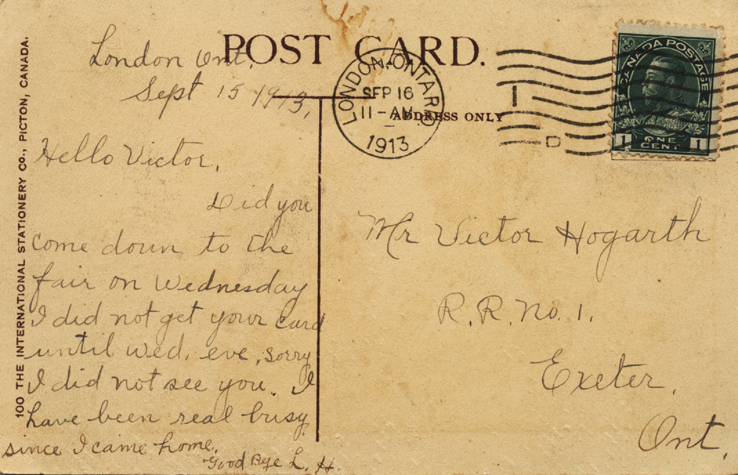 POST CARD.
ADDRESS ONLY
100 THE INTERNATIONAL STATIONERY CO., PICTON, CANADA.
LONDON, ONTARIO
SEP 16
11-AM
1913
I
D
CANADA POSTAGE
1 ONE CENT. 1
London Ont.
Sept 15 1913,
Hello Victor,
Did you
come down to the
fair on Wednesday
I did not get your card
until wed. eve, sorry
I did not see you. I
have been real busy
since I came home.
Good Bye L. H.
Mr Victor Hogarth
R.R. No. 1.
Exeter,
Ont,